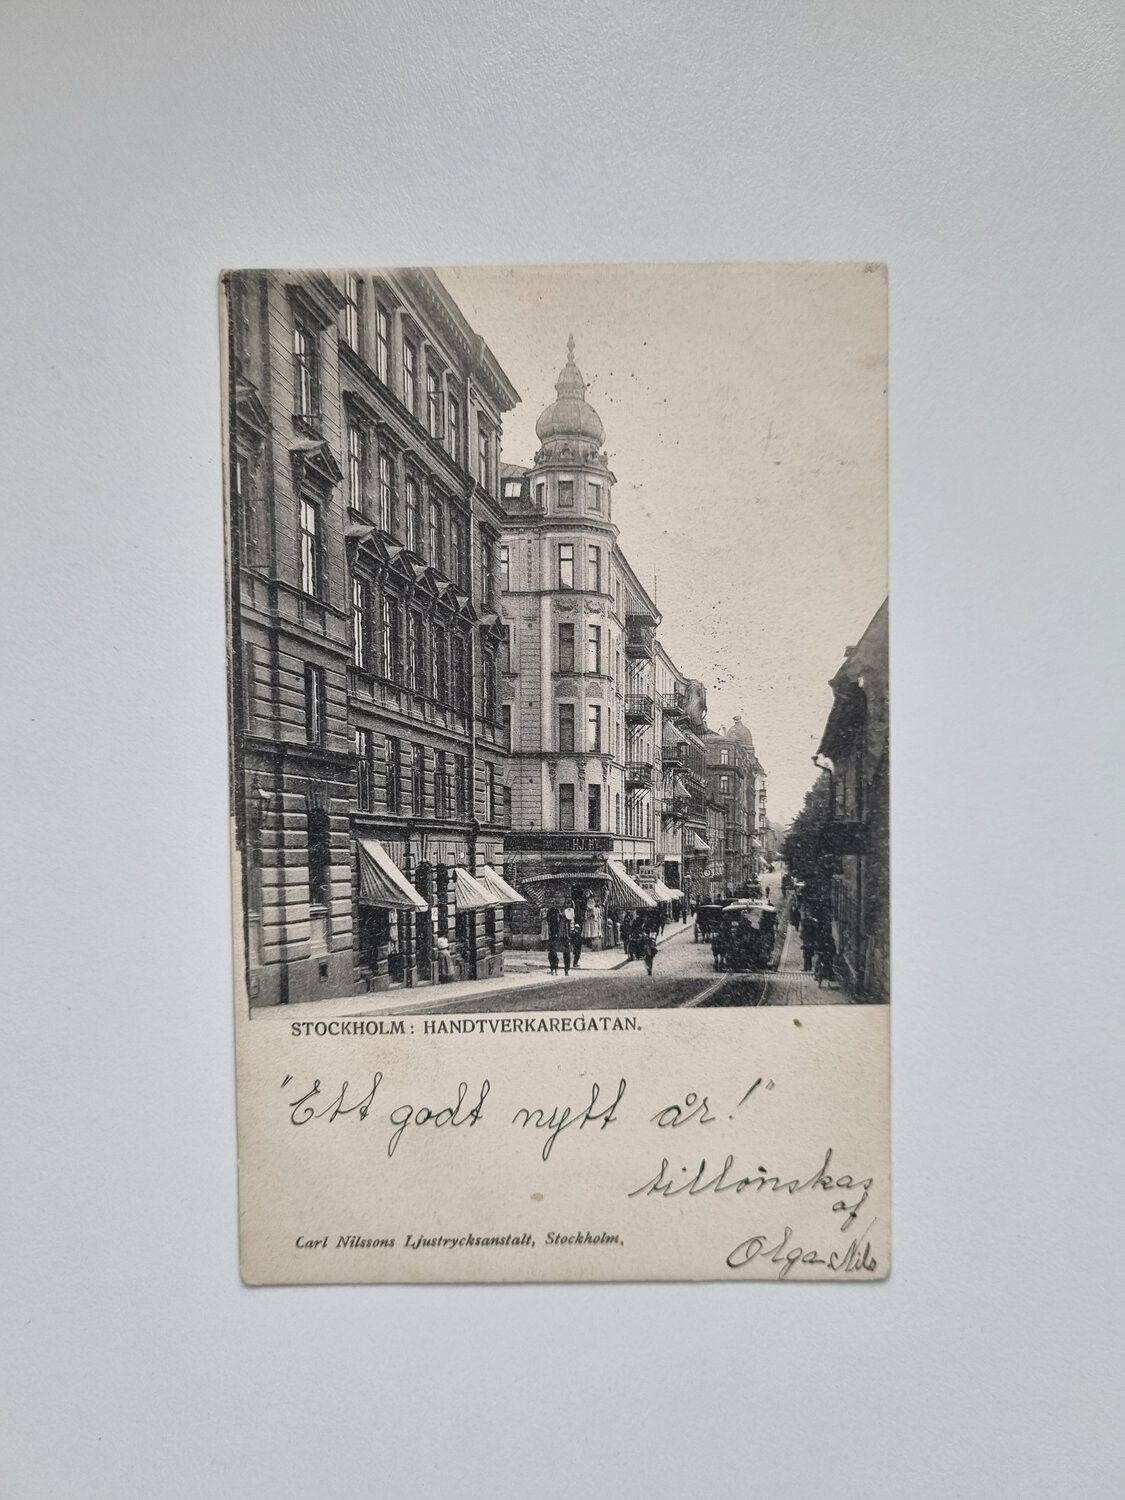 STOCKHOLM: HANDTVERKAREGATAN.
"Ett godt nytt år!"
tillönskas
af
Olga Nils
Carl Nilssons Ljustrycksanstalt, Stockholm.